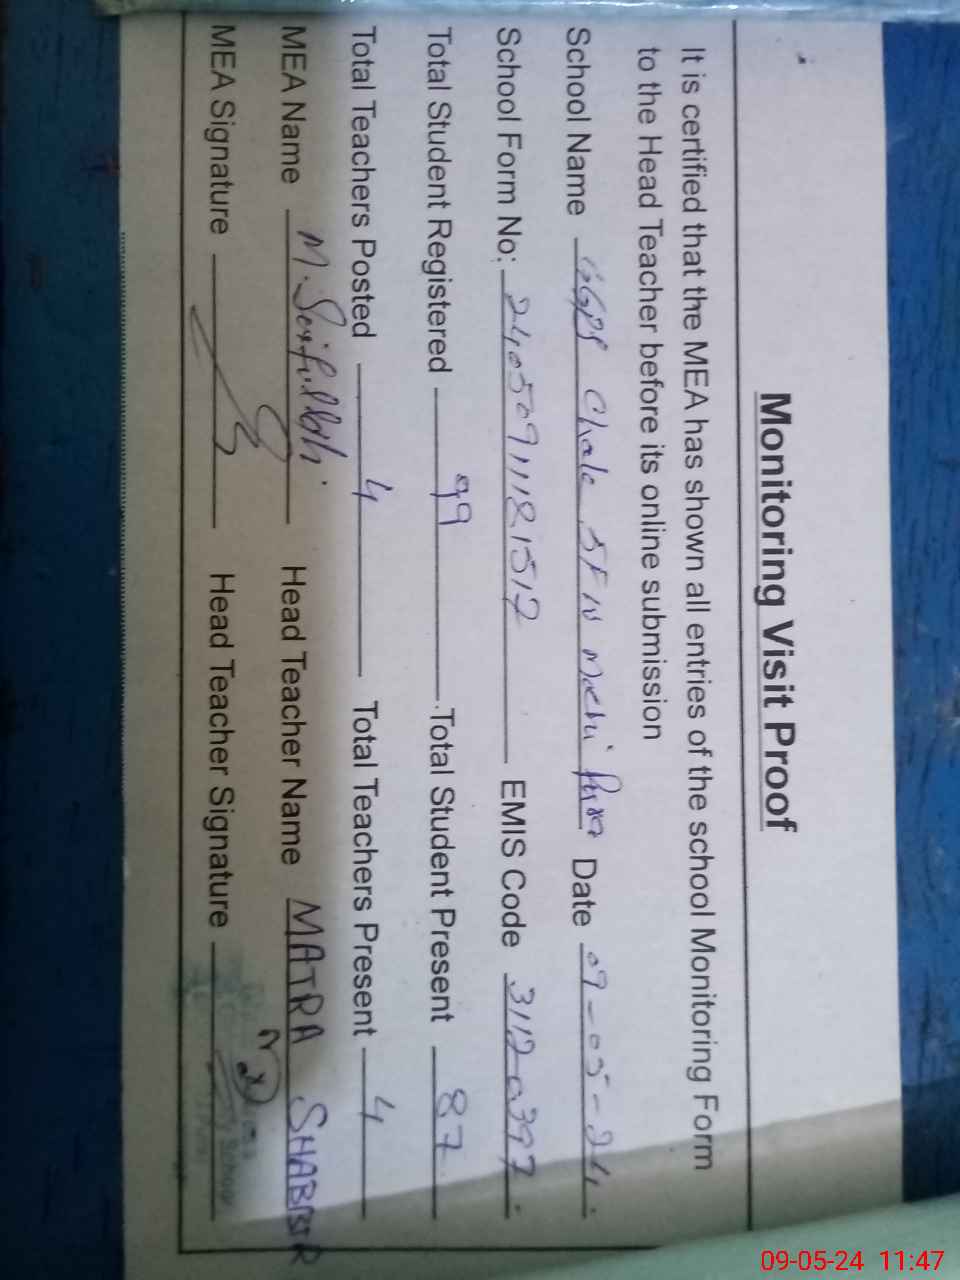 Monitoring Visit Proof
It is certified that the MEA has shown all entries of the school Monitoring Form
to the Head Teacher before its online submission
School Name GGPS Chak 5F w Date 09-05-24
School Form No: 240509111821512 EMIS Code 31120397
Total Student Registered 99 Total Student Present 87
Total Teachers Posted 4 Total Teachers Present 4
MEA Name M. Head Teacher Name MAIRA SHABBIR
MEA Signature Head Teacher Signature
09-05-24 11:47